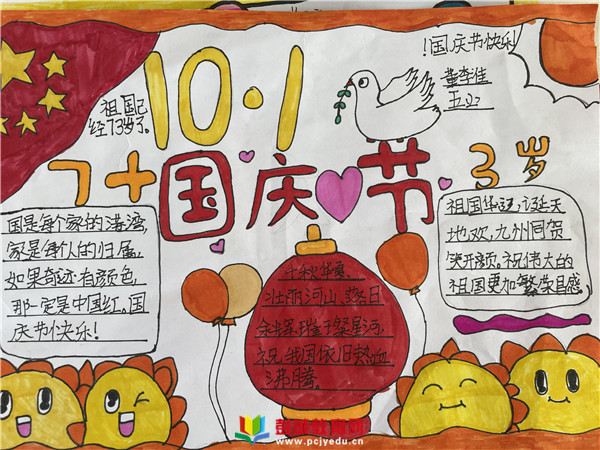 10·1
!国庆节快乐
董李佳
五.2
祖国已
经73岁了。
7十国庆节3岁
国是每个家的港湾,
家是每个人的归属,
如果奇迹有颜色,
那一定是中国红。国
庆节快乐!
千秋华夏,
壮丽河山,落日
余晖,璀璨星河,
祝我国依旧热血
沸腾。
祖国华诞,诞天
地欢,九州同贺
笑开颜,祝伟大的
祖国更加繁荣昌盛
www.pcjyedu.cn